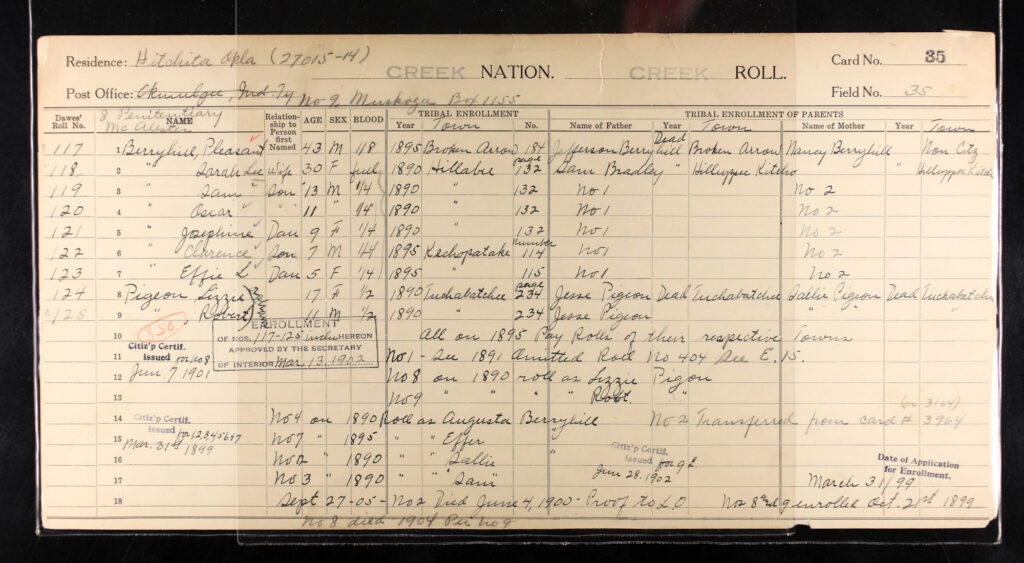 Residence: Hitchita Okla (27015-14) CREEK NATION. CREEK ROLL. Card No. 35
Post Office: Okmulgee, Ind. Ty No 2 Muskogee Box 1155 Field No. 35
Dawes' Roll No. NAME Relationship to Person first Named AGE SEX BLOOD TRIBAL ENROLLMENT Year Town No. TRIBAL ENROLLMENT OF PARENTS Name of Father Year Town Name of Mother Year Town
8 Penitentiary
McAlester
117 1 Berryhill, Pleasant 43 M 1/8 1895 Broken Arrow 184 Jefferson Berryhill Dead Broken Arrow Nancy Berryhill Non Citz
118 2 " Sarah Lee Wife 30 F full 1890 Hillabe page 132 Sam Bradley "
119 3 " Sam Son 13 M 1/4 1890 " 132 No 1 No 2
120 4 " Oscar " 11 " 1/4 1890 132 No 1 No 2
121 5 " Josephine Dau 9 F 1/4 1890 " 132 No 1 No 2
122 6 " Clarence Son 7 M 1/4 1895 Kechopatake number 114 no 1 No 2
123 7 " Effie L Dau 5 F 1/4 1895 " 115 No 1 No 2
124 8 Pigeon Lizzie 17 F 1/2 1890 Tuckabatchee page 234 Jesse Pigeon Dead Tuckabatchee Sallie Pigeon Dead Tuckabatchee
125 9 " Robert 11 M 1/2 1890 " 234 Jesse Pigeon " " "
10 All on 1895 Pay Rolls of their respective Towns
ENROLLMENT
OF NOS. 117-125 inclu HEREON
APPROVED BY THE SECRETARY
OF INTERIOR Mar. 13. 1902
Citiz'p Certif.
Issued for no 8
Jun. 7 1901
11 No 1 - See 1891 Omitted Roll No 404 See E. 15.
12 No 8 on 1890 roll as Lizzie Pigon
13 No 9 " " " " Robt. "
(or 3164)
14 No 4 on 1890 Roll as Augusta Berryhill No 2 Transferred from card # 3964
Citiz'p Certif.
Issued for 1234567
Mar. 31st 1899
15 No 7 " 1895 " " Effer "
16 No 2 " 1890 " " Sallie "
17 No 3 " 1890 " " Sam "
Citiz'p Certif.
Issued for 9
Jun 28. 1902
Date of Application
for Enrollment.
March 31/99
18 Sept 27-05- No 2 Died June 4, 1900 - Proof to L.O. Nos 8 and 9 enrolled Oct. 21st 1899
No 8 died 1904 Per no 9